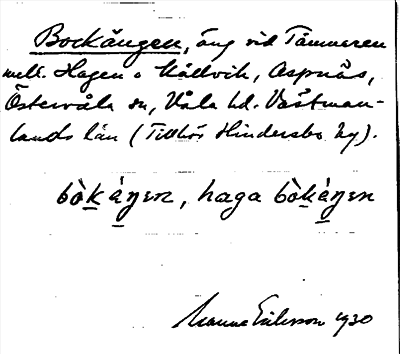 Bockängen, äng vid Tämnaren
mell. Hagen o Källvik, Aspnäs,
Östervåla sn, Våla hd. Västman-
lands län (Tillhör Hindersbo by).
bòkáŋen, haga bòkáŋen
Manne Eriksson 1930